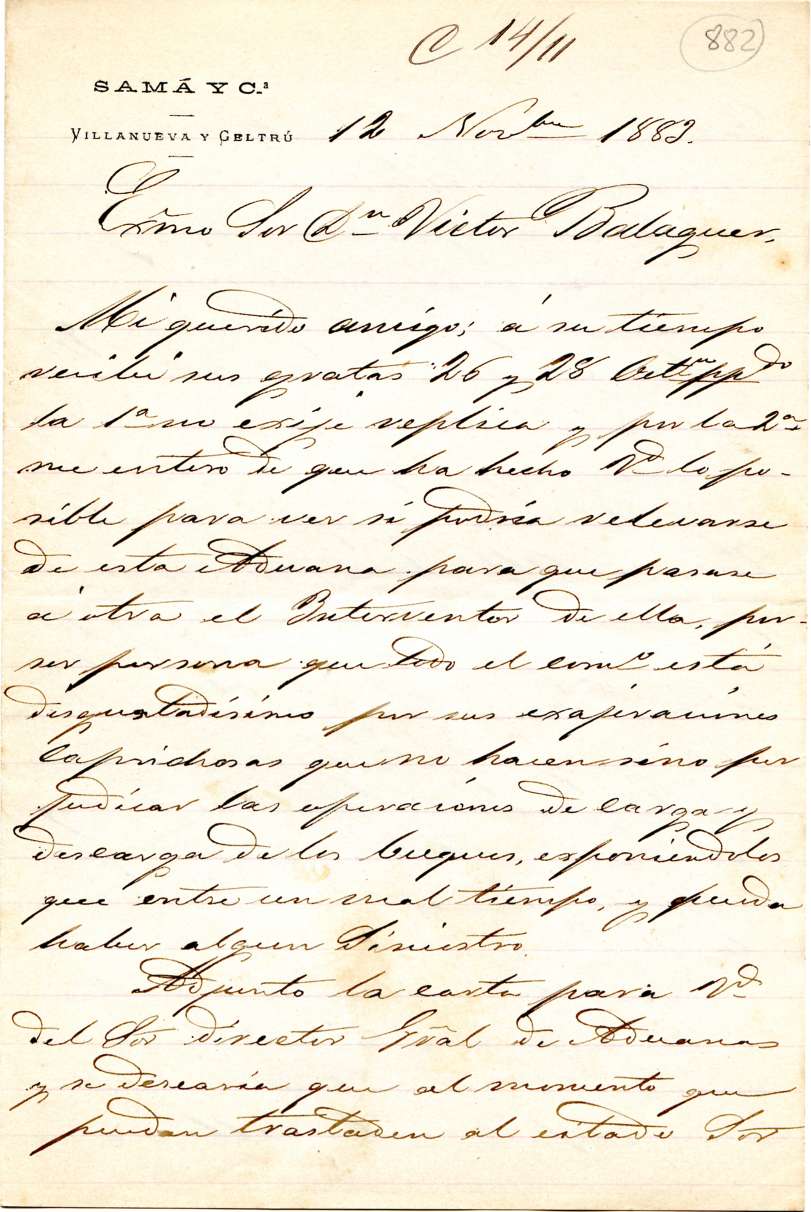 C 14/11
882
SAMÁ Y C.ª
VILLANUEVA Y GELTRÚ
12 Novbre 1883.
Exmo Sor Dn Victor Balaguer.
Mi querido amigo; á su tiempo
recibí sus gratas 26 y 28 Octbre ppdo
la 1ª no exije replica y por la 2ª
me entero de que ha hecho Vd lo po-
sible para ver si podría relevarse
de esta Aduana para que pasase
á otra el Interventor de ella, por
ser persona que todo el como está
disgustadísimo por sus exajeraciones
caprichosas que no hacen sino per
judicar las operaciones de carga y
descarga de los buques, exponiendolos
que entre un mal tiempo, y pueda
haber algun Siniestro.
Adjunto la carta para Vd
del Sor director Gral de Aduanas
y se desearía que al momento que
puedan trasladen al citado Sor